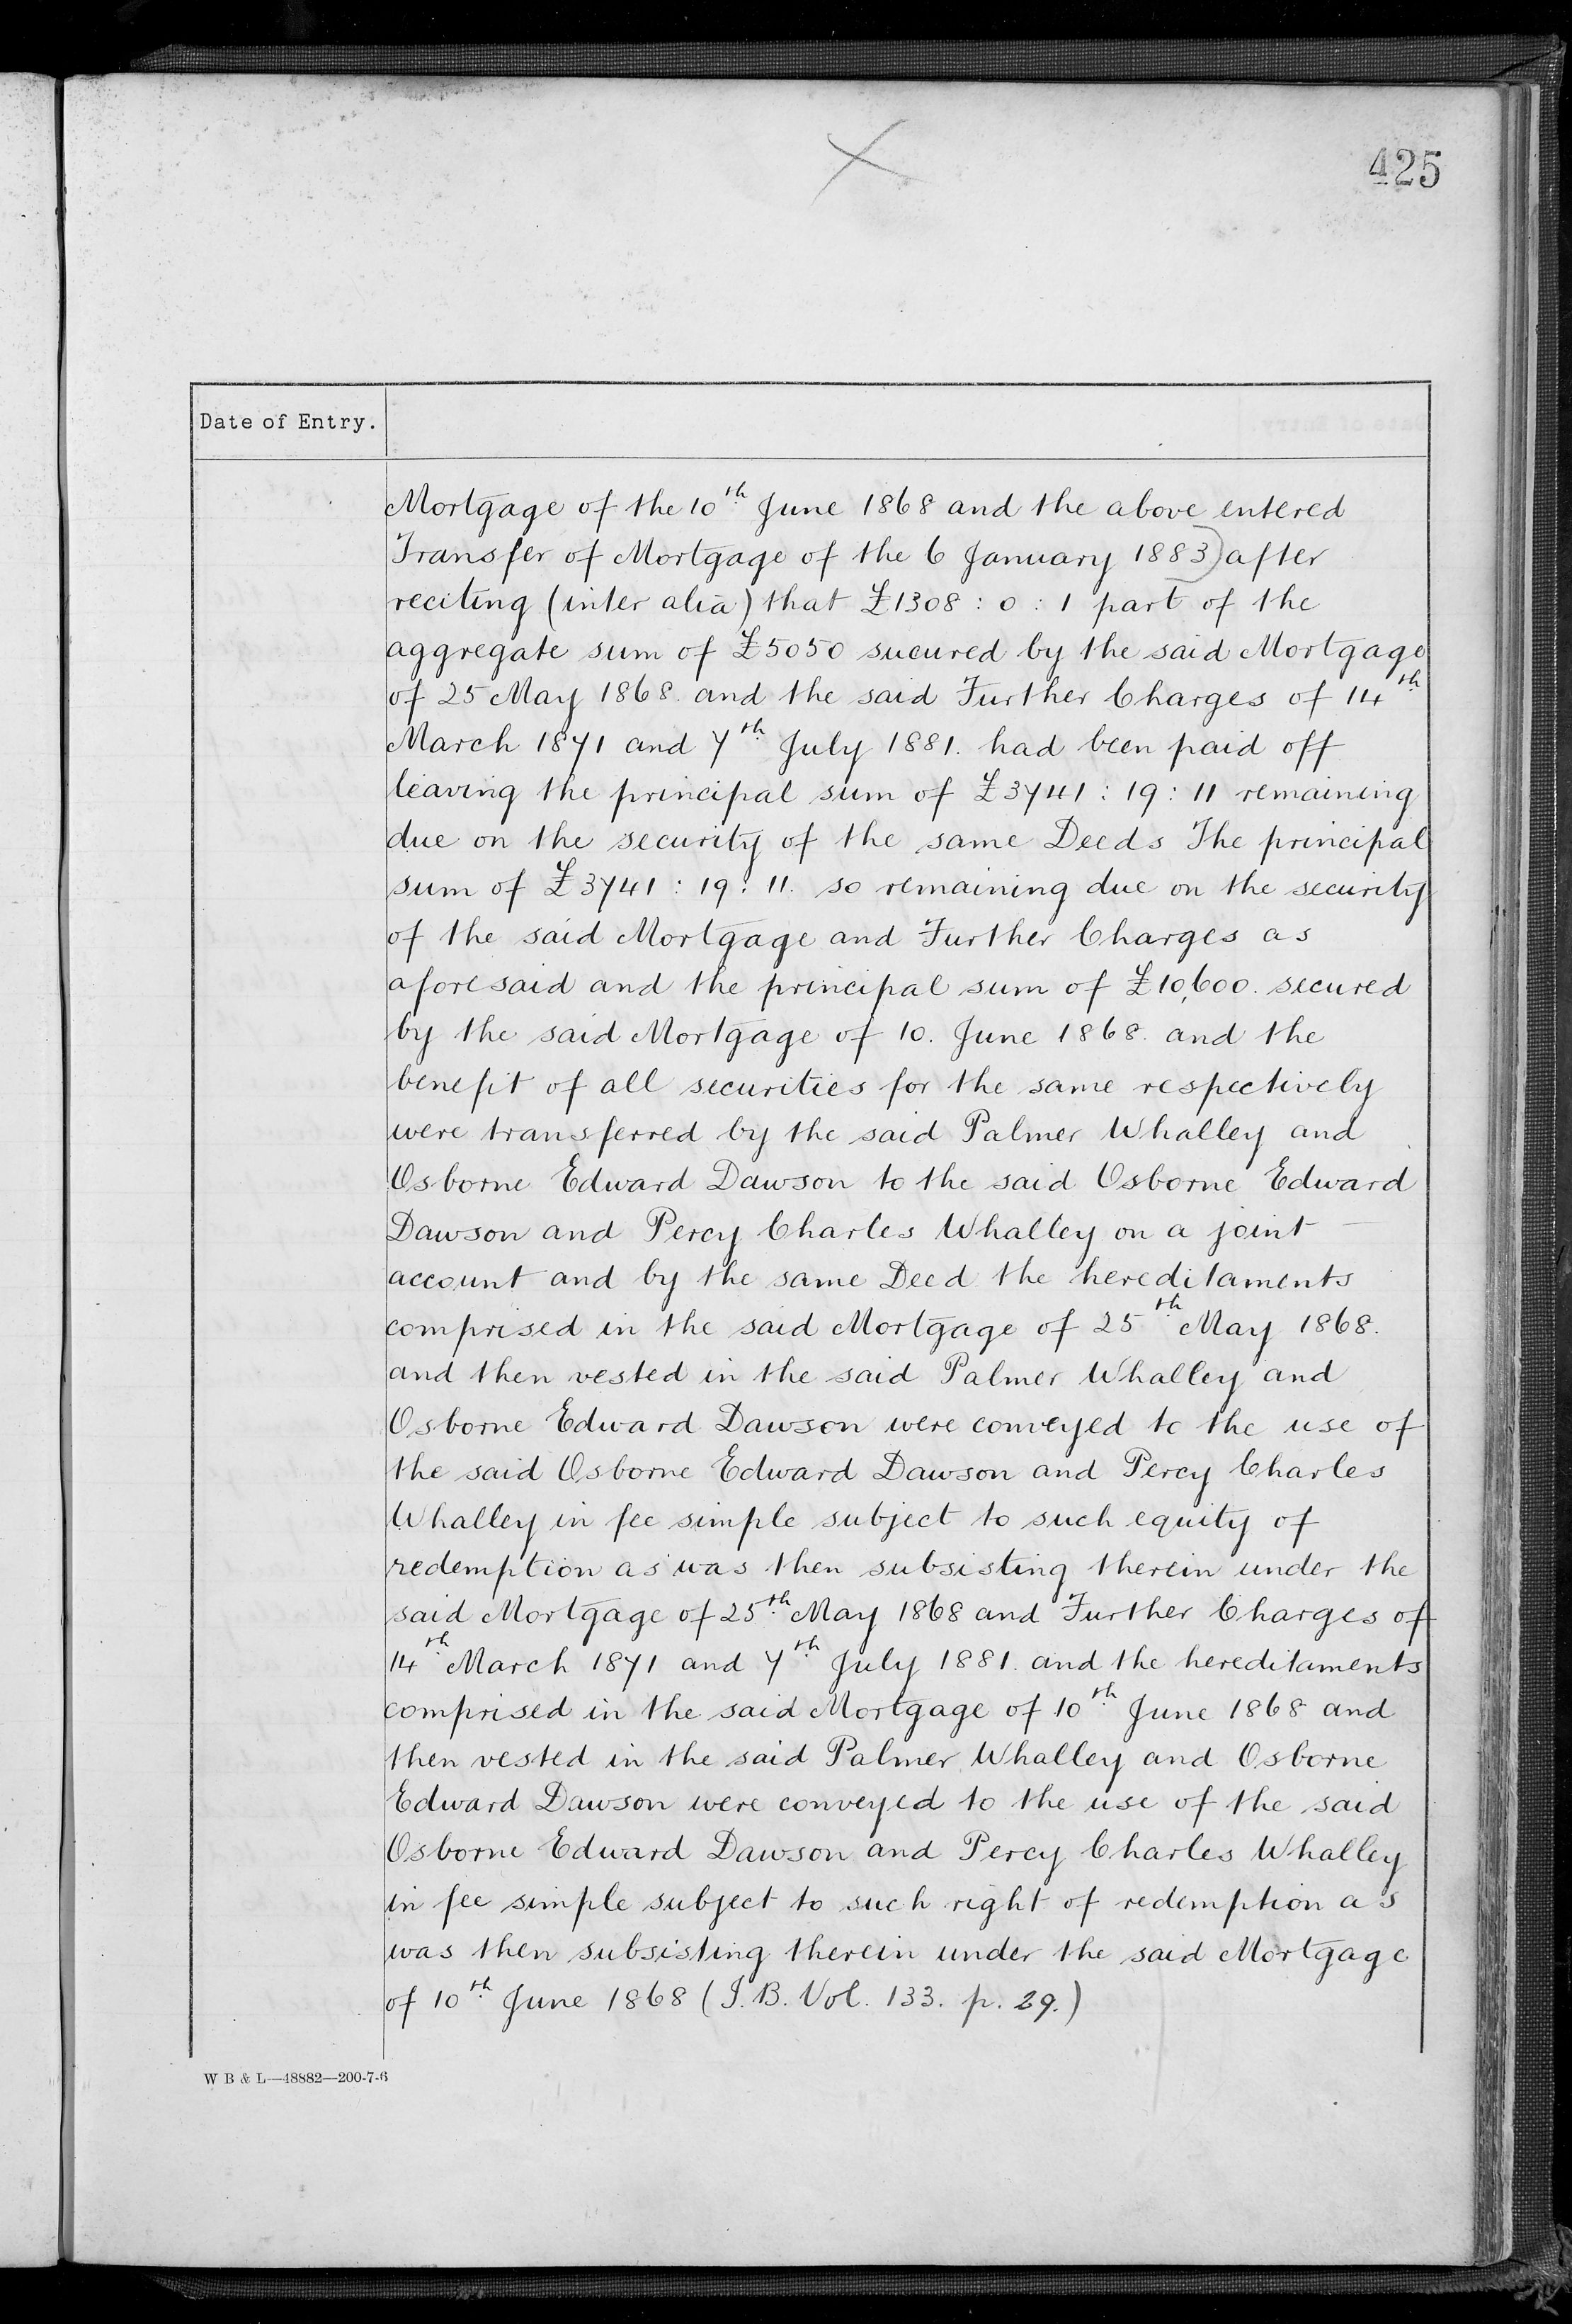 425
Date of Entry.
Mortgage of the 10th June 1868 and the above entered
Transfer of Mortgage of the 6 January 1883) after
reciting (inter alia) that £1308 : 0 : 1 part of the
aggregate sum of £5050 sucured by the said Mortgage
of 25 May 1868. and the said Further Charges of 14th
March 1871 and 7th July 1881. had been paid off
leaving the principal sum of £3741 : 19 : 11 remaining
due on the security of the same Deeds The principal
sum of £3741 : 19 : 11. so remaining due on the security
of the said Mortgage and Further Charges as
aforesaid and the principal sum of £10,600. secured
by the said Mortgage of 10. June 1868. and the
benefit of all securities for the same respectively
were transferred by the said Palmer Whalley and
Osborne Edward Dawson to the said Osborne Edward
Dawson and Percy Charles Whalley on a joint
account and by the same Deed the hereditaments
comprised in the said Mortgage of 25th May 1868.
and then vested in the said Palmer Whalley and
Osborne Edward Dawson were conveyed to the use of
the said Osborne Edward Dawson and Percy Charles
Whalley in fee simple subject to such equity of
redemption as was then subsisting therein under the
said Mortgage of 25th May 1868 and Further Charges of
14th March 1871 and 7th July 1881. and the hereditaments
comprised in the said Mortgage of 10th June 1868 and
then vested in the said Palmer Whalley and Osborne
Edward Dawson were conveyed to the use of the said
Osborne Edward Dawson and Percy Charles Whalley
in fee simple subject to such right of redemption as
was then subsisting therein under the said Mortgage
of 10th June 1868 (I. B. Vol. 133. p. 29.)
W B & L—48882—200-7-6